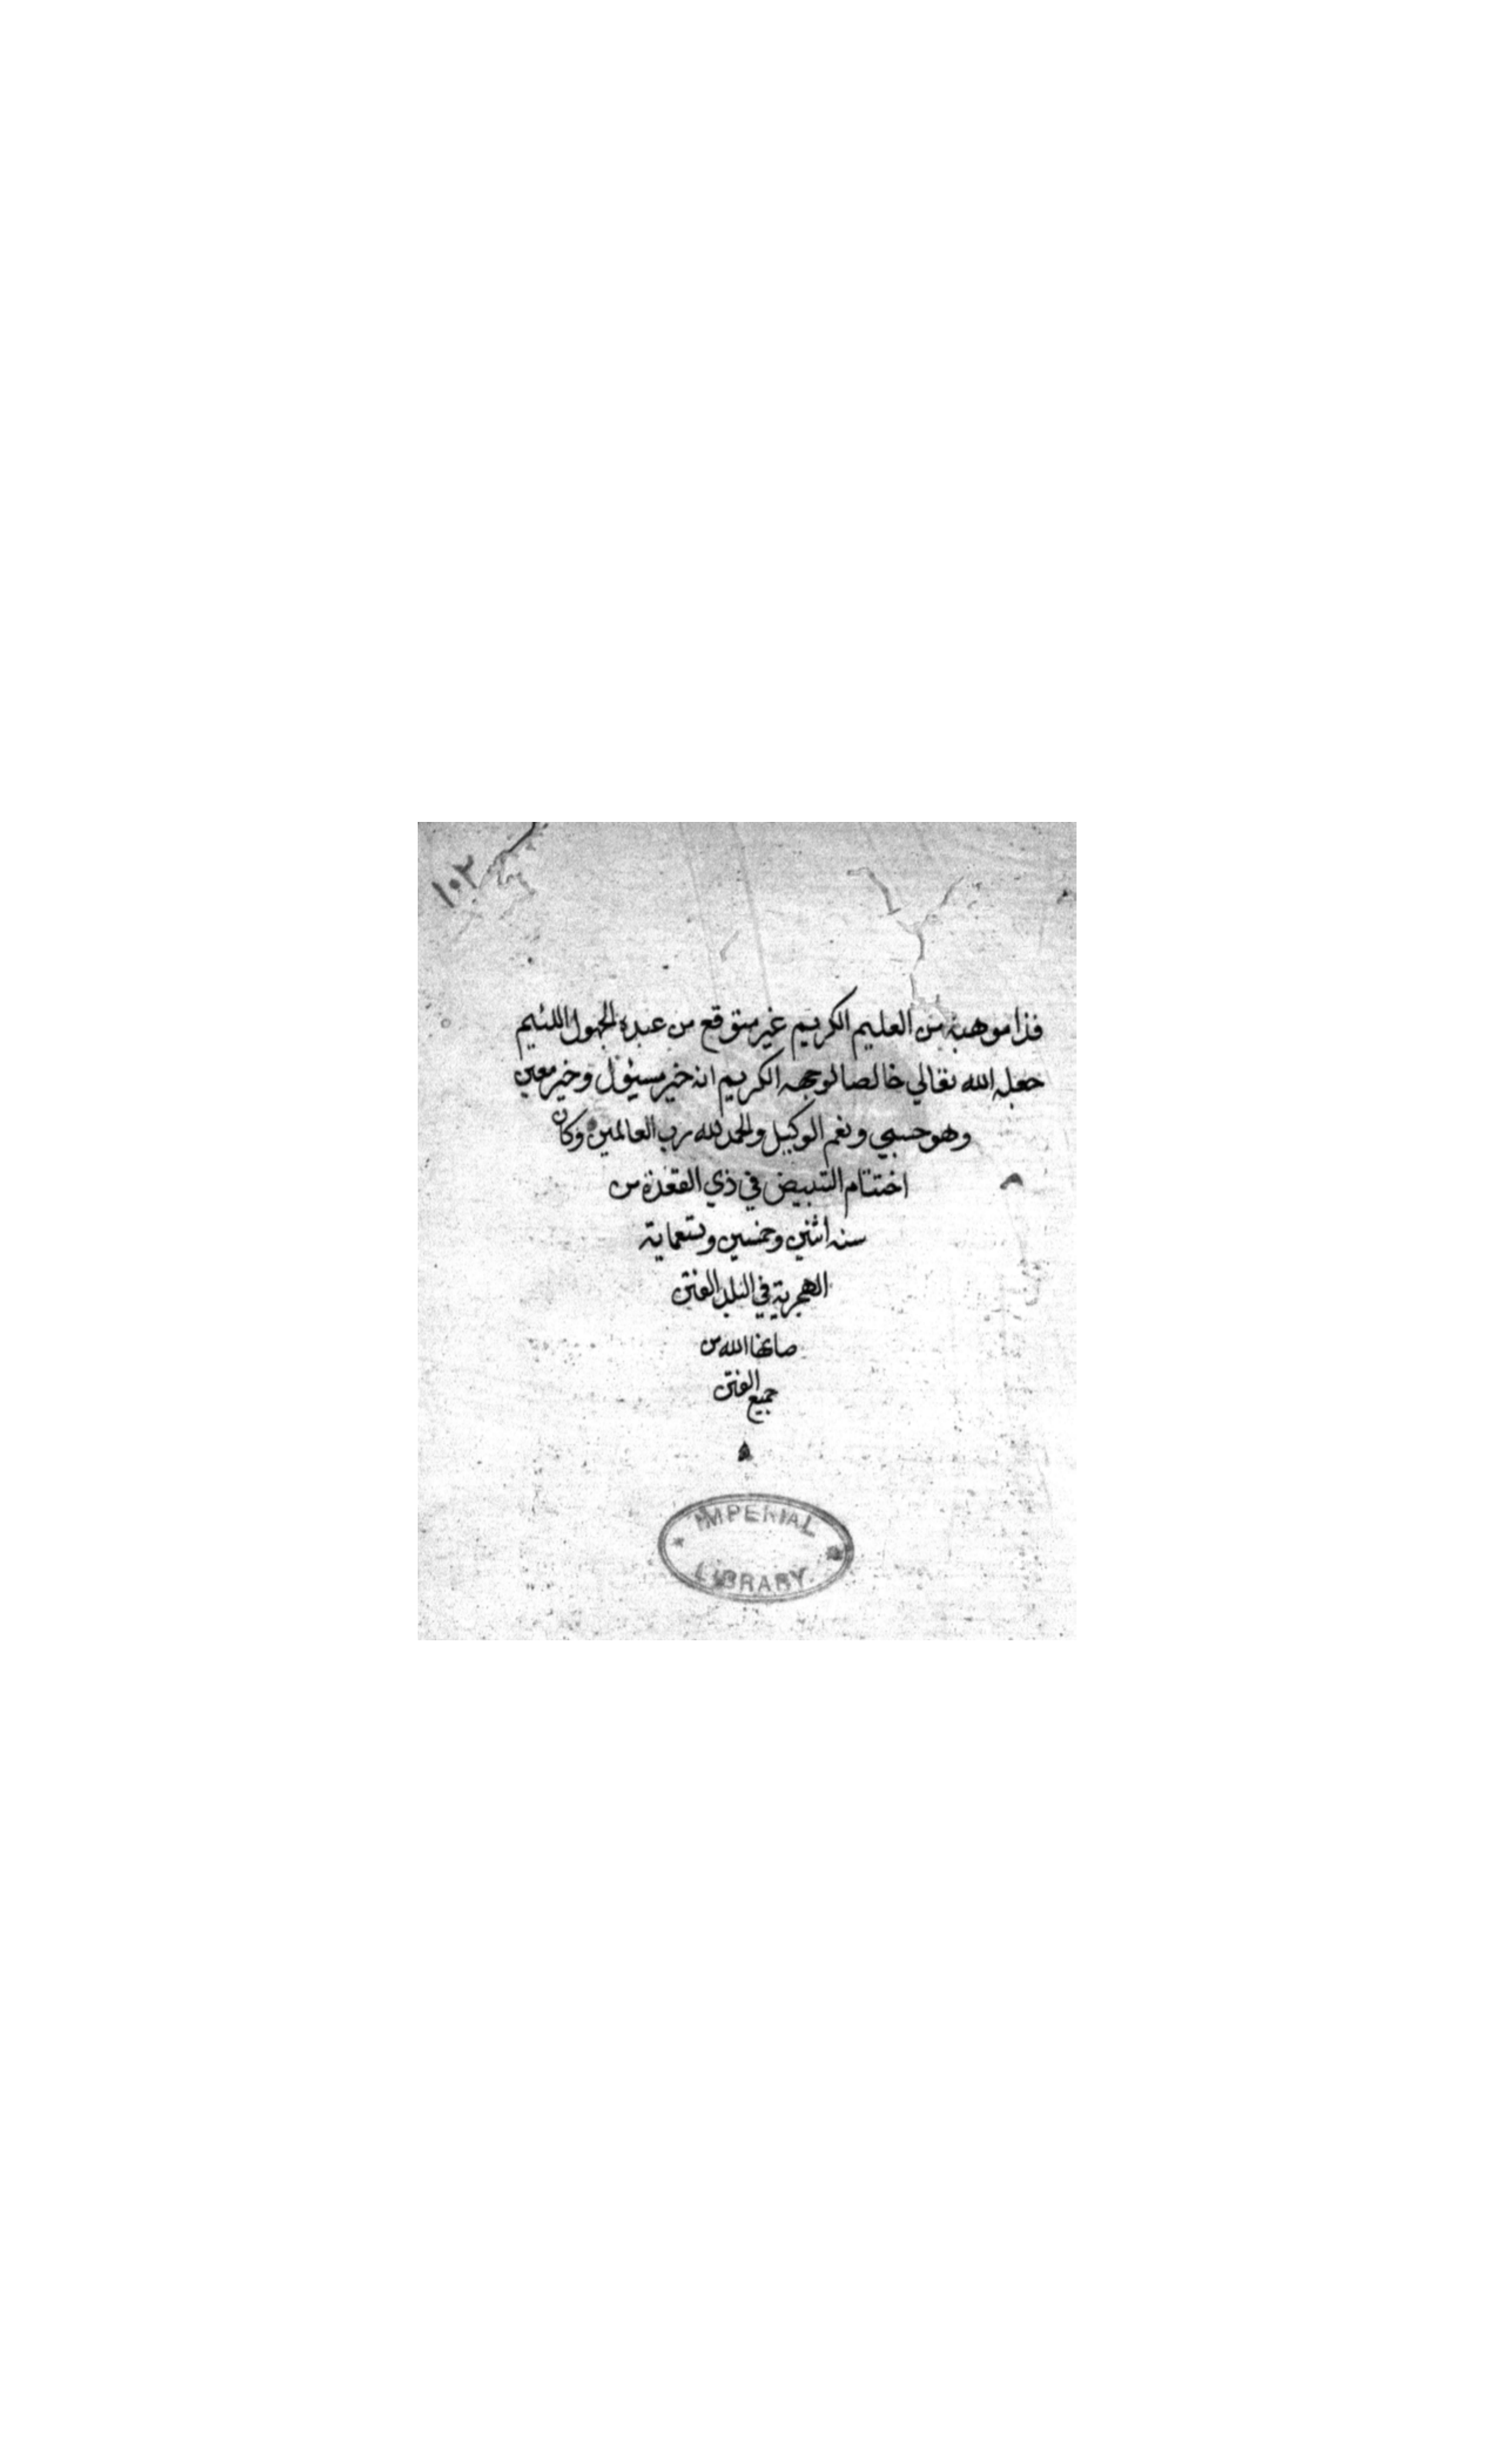 ١٠٣
فذا موهبة من العليم الكريم غير متوقع من عبده الجهول اللئيم
جعله الله تعالي خالصا لوجهه الكريم انه خير مسئول وخير معين
وهو حسبي ونعم الوكيل والحمد لله رب العالمين وكان
اختتام التبييض في ذي القعدة من
سنه اثنين وخمسين وتسعماية
الهجرية في البلد الفتن
صانها الله من
جميع الفتن
IMPERIAL
LIBRARY